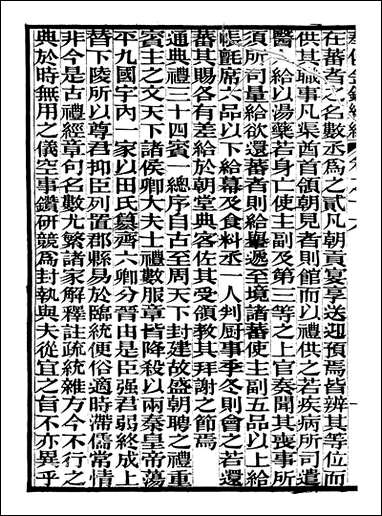 在蕃者之名數丞爲之貳凡朝貢宴享送迎預焉皆辨其等位而
供其職事凡渠酋首領朝見者則館而以禮供之若疾病所司遣
醫人給以湯藥若身亡使主副及第三等之上官奏聞其喪事所
須所司量給欲還蕃者則給轝遞至境諸蕃使主副五品以上給
帳氈席六品以下給幕及食料丞一人判厨事季冬則會之若還
蕃其賜各有差給於朝堂典客佐其受領教其拜謝之節焉
通典禮三十四賓一總序自古至周天下封建故盛朝聘之禮重
賓主之文天下諸侯卿大夫士禮數服章皆降殺以兩秦皇帝蕩
平九國宇內一家以田氏簒齊六卿分晉由是臣强君弱終成上
替下陵所以尊君抑臣列置郡縣易於臨統便俗適時滯儒常情
非今是古禮經章句名數尤繁諸家解釋註疏統雜方今不行之
典於時無用之儀空事鑽研競爲封執與夫從宜之旨不亦異乎